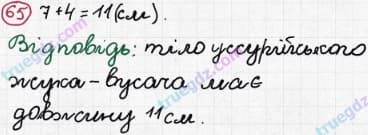 65 7+4=11(см).
Відповідь: тіло уссурійського
жука-вусача має
довжину 11 см.